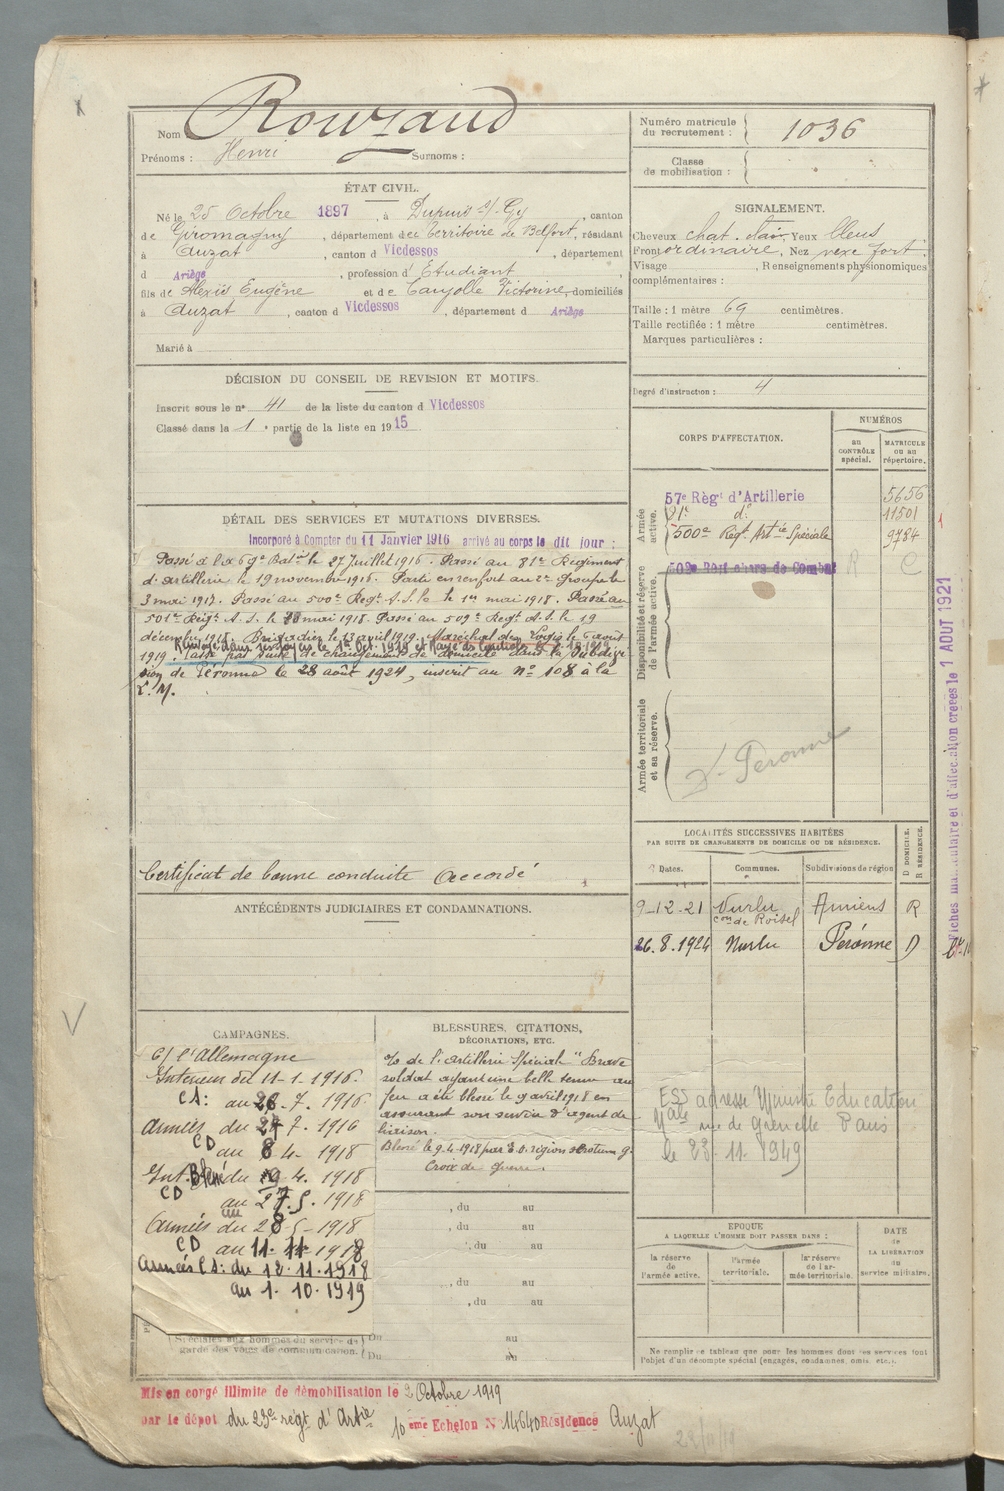 Rouzaud
Nom
Prénoms : Henri Surnoms :
ÉTAT CIVIL.
Né le 25 Octobre 1897, à Dupuis s/ Gy, canton
de Giromagny, département de Territoire de Belfort, résidant
à Auzat, canton d Vicdessos, département
d Ariège, profession d' Etudiant,
fils de Alexis Eugène et de Caujolle Victorine, domiciliés
à Auzat, canton d Vicdessos, département d Ariège
Marié à
DÉCISION DU CONSEIL DE REVISION ET MOTIFS.
Inscrit sous le n° 41 de la liste du canton d Vicdessos
Classé dans la 1e partie de la liste en 1915
DÉTAIL DES SERVICES ET MUTATIONS DIVERSES.
Incorporé à Compter du 11 Janvier 1916 arrivé au corps le dit jour :
Passé à la 69e Batie le 27 Juillet 1916. Passé au 81e Régiment
d'artillerie le 19 novembre 1916. Parti en renfort au 2e groupe le
3 mai 1917. Passé au 500e Regt A.S. le 1er mai 1918. Passé au
501e Régt A.S. le mai 1918. Passé au 509e Regt A.S. le 19
décembre 1918. Brigadier le 13 avril 1919. Maréchal des Logis le 6 août
1919.
Renvoyé dans ses foyers le 1er Oct. 1919 et Rayé des Contrôles
Passé par suite de changement de domicile dans la subdivi
sion de Péronne le 28 août 1924, inscrit au n° 108 à la
L.M.
Certificat de bonne conduite Accordé
ANTÉCÉDENTS JUDICIAIRES ET CONDAMNATIONS.
CAMPAGNES.
C/ l'Allemagne
Interieur du 11-1-1916.
CS: au 26.7.1916
Armées du 27 7.1916
CD au 8 4-1918
Int. Blessé du 9 4.1918
CD au 27.5.1918
Armées du 28-5-1918
CD au 11-11-1918
Armées CS: du 12.11.1918
au 1.10.1919
Spéciales aux hommes du service de Du au
garde des voies de communication. Du au
BLESSURES, CITATIONS,
DÉCORATIONS, ETC.
o/o de l'artillerie Spéciale "Brave
soldat ayant une belle tenue au
feu a été blessé le 9 avril 1918 en
assurant son service d'agent de
liaison.
Blessé le 9.4.1918 par E.O. région scrotum g.
Croix de guerre.
, du au
, du au
, du au
, du au
, du au
Numéro matricule
du recrutement : 1036
Classe
de mobilisation :
SIGNALEMENT.
Cheveux chat. clair. Yeux bleus
Front ordinaire, Nez vexe fort.
Visage , Renseignements physionomiques
complémentaires :
Taille : 1 mètre 69 centimètres.
Taille rectifiée : 1 mètre centimètres.
Marques particulières :
Degré d'instruction : 4
CORPS D'AFFECTATION.
NUMÉROS
au CONTRÔLE spécial.
MATRICULE OU AU répertoire.
Armée active.
57e Règt d'Artillerie 5656
81e d° 11501
500e Regt Artie Spéciale 9784
Disponibilité et réserve de l'armée active.
502e Régt chars de Combat R C
Armée territoriale et sa réserve.
Peronne
Fiches matriculaire et d'affectation créées le 1 AOUT 1921
LOCALITÉS SUCCESSIVES HABITÉES
PAR SUITE DE CHANGEMENTS DE DOMICILE OU DE RÉSIDENCE.
Dates. Communes. Subdivisions de région D DOMICILE. R RÉSIDENCE.
9-12-21 Nurlu Con de Roisel Amiens R
26.8.1924 Nurlu Péronne D
ESS adresse Ministre Education
Nale rue de Grenelle Paris
le 23.11.1949
EPOQUE
A LAQUELLE L'HOMME DOIT PASSER DANS :
la réserve de l'armée active. l'armée territoriale. la réserve de l'armée territoriale.
DATE de LA LIBÉRATION du service militaire.
Ne remplir ce tableau que pour les hommes dont les services font
l'objet d'un décompte spécial (engagés, condamnés, omis, etc.).
Mis en congé illimité de démobilisation le 2 Octobre 1919
par le dépôt du 23e régt d'Artie 10 ème Echelon N° 14640 Résidence Auzat